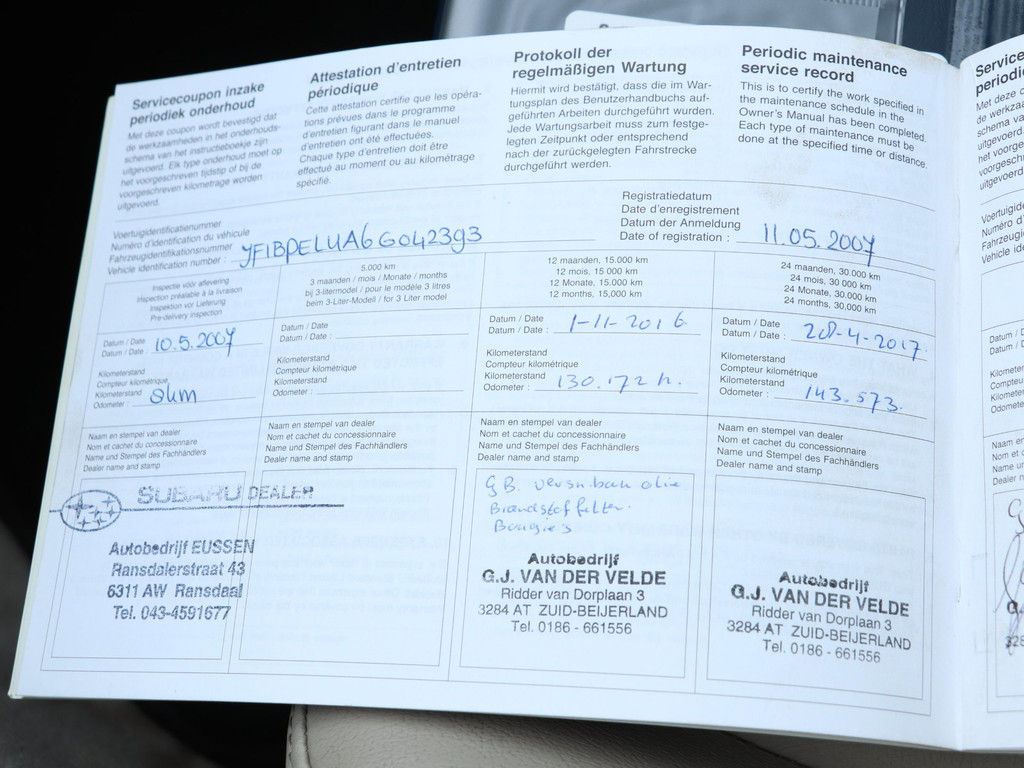 Servicecoupon inzake
periodiek onderhoud
Met deze coupon wordt bevestigd dat
de werkzaamheden in het onderhouds-
schema van het instructieboekje zijn
uitgevoerd. Elk type onderhoud moet op
het voorgeschreven tijdstip of bij de
voorgeschreven kilometrage worden
uitgevoerd.
Attestation d'entretien
périodique
Cette attestation certifie que les opéra-
tions prévues dans le programme
d'entretien figurant dans le manuel
d'entretien ont été effectuées.
Chaque type d'entretien doit être
effectué au moment ou au kilométrage
spécifié.
Protokoll der
regelmäßigen Wartung
Hiermit wird bestätigt, dass die im War-
tungsplan des Benutzerhandbuchs auf-
geführten Arbeiten durchgeführt wurden.
Jede Wartungsarbeit muss zum festge-
legten Zeitpunkt oder entsprechend
nach der zurückgelegten Fahrstrecke
durchgeführt werden.
Periodic maintenance
service record
This is to certify the work specified in
the maintenance schedule in the
Owner's Manual has been completed.
Each type of maintenance must be
done at the specified time or distance.
Voertuigidentificatienummer
Numéro d'identification du véhicule
Fahrzeugidentifikationsnummer
Vehicle identification number : JF1BPELUA6G042393
Registratiedatum
Date d'enregistrement
Datum der Anmeldung
Date of registration : 11.05.2007
Inspectie vóór aflevering
Inspection préalable à la livraison
Inspektion vor Lieferung
Pre-delivery inspection
5.000 km
3 maanden / mois / Monate / months
bij 3-litermodel / pour le modèle 3 litres
beim 3-Liter-Modell / for 3 Liter model
12 maanden, 15.000 km
12 mois, 15.000 km
12 Monate, 15.000 km
12 months, 15,000 km
24 maanden, 30.000 km
24 mois, 30.000 km
24 Monate, 30.000 km
24 months, 30,000 km
Datum / Date
Datum / Date : 10.5.2007
Kilometerstand
Compteur kilométrique
Kilometerstand
Odometer : 0km
Datum / Date
Datum / Date :
Kilometerstand
Compteur kilométrique
Kilometerstand
Odometer :
Datum / Date
Datum / Date : 1-11-2016
Kilometerstand
Compteur kilométrique
Kilometerstand
Odometer : 130.172
Datum / Date
Datum / Date : 28-4-2017.
Kilometerstand
Compteur kilométrique
Kilometerstand
Odometer : 143.573.
Naam en stempel van dealer
Nom et cachet du concessionnaire
Name und Stempel des Fachhändlers
Dealer name and stamp
Naam en stempel van dealer
Nom et cachet du concessionnaire
Name und Stempel des Fachhändlers
Dealer name and stamp
Naam en stempel van dealer
Nom et cachet du concessionnaire
Name und Stempel des Fachhändlers
Dealer name and stamp
Naam en stempel van dealer
Nom et cachet du concessionnaire
Name und Stempel des Fachhändlers
Dealer name and stamp
SUBARU DEALER
Autobedrijf EUSSEN
Ransdalerstraat 43
6311 AW Ransdaal
Tel. 043-4591677
olie
Brandstoffilter.
Bougie's
Autobedrijf
G.J. VAN DER VELDE
Ridder van Dorplaan 3
3284 AT ZUID-BEIJERLAND
Tel. 0186 - 661556
Autobedrijf
G.J. VAN DER VELDE
Ridder van Dorplaan 3
3284 AT ZUID-BEIJERLAND
Tel. 0186 - 661556